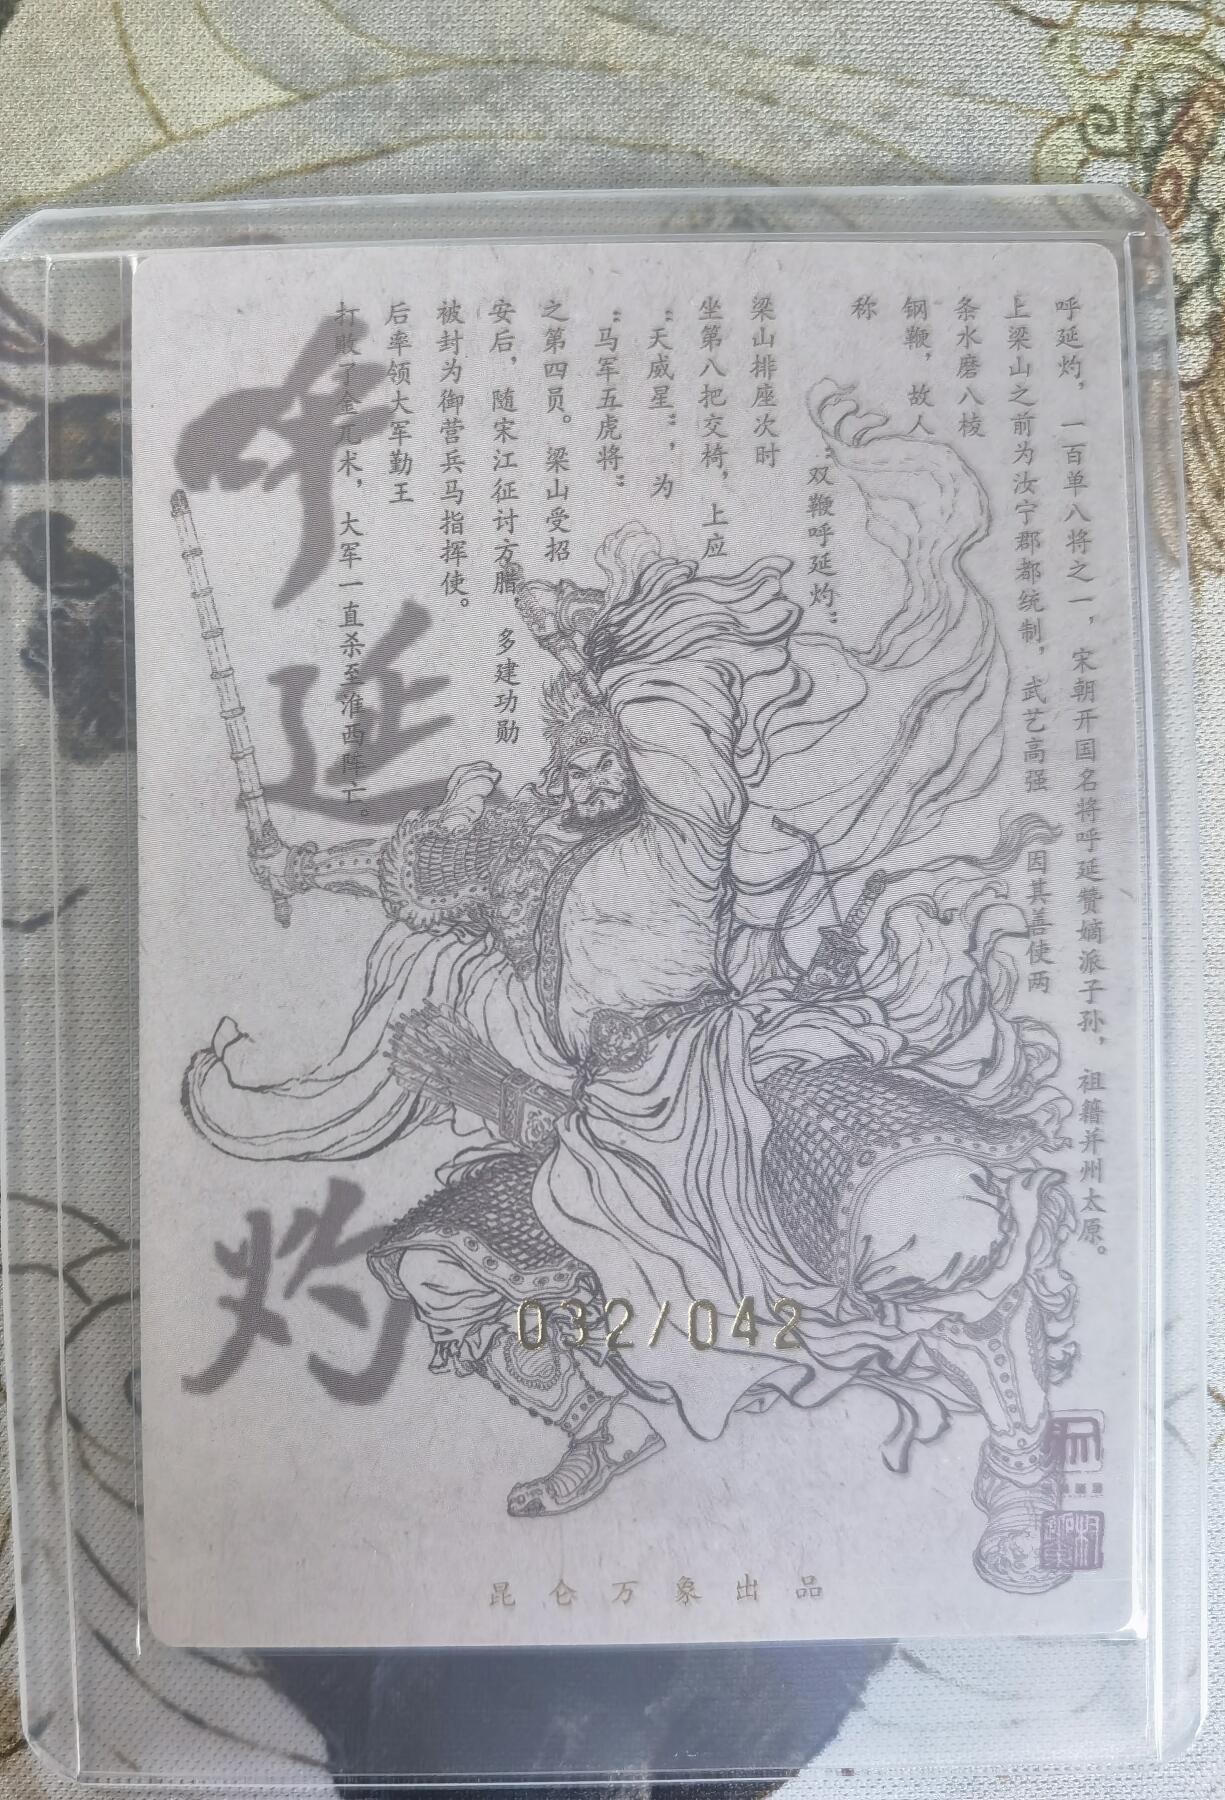 呼延灼，一百单八将之一，宋朝开国名将呼延赞嫡派子孙，祖籍并州太原。
上梁山之前为汝宁郡都统制，武艺高强 因其善使两
条水磨八棱
钢鞭，故人
称
“双鞭呼延灼”
梁山排座次时
坐第八把交椅，上应
“天威星”，为
“马军五虎将”
之第四员。梁山受招
安后，随宋江征讨方腊，多建功勋
被封为御营兵马指挥使。
后率领大军勤王
打败了金兀术，大军一直杀至淮西阵亡。
呼延灼
032/042
昆仑万象出品